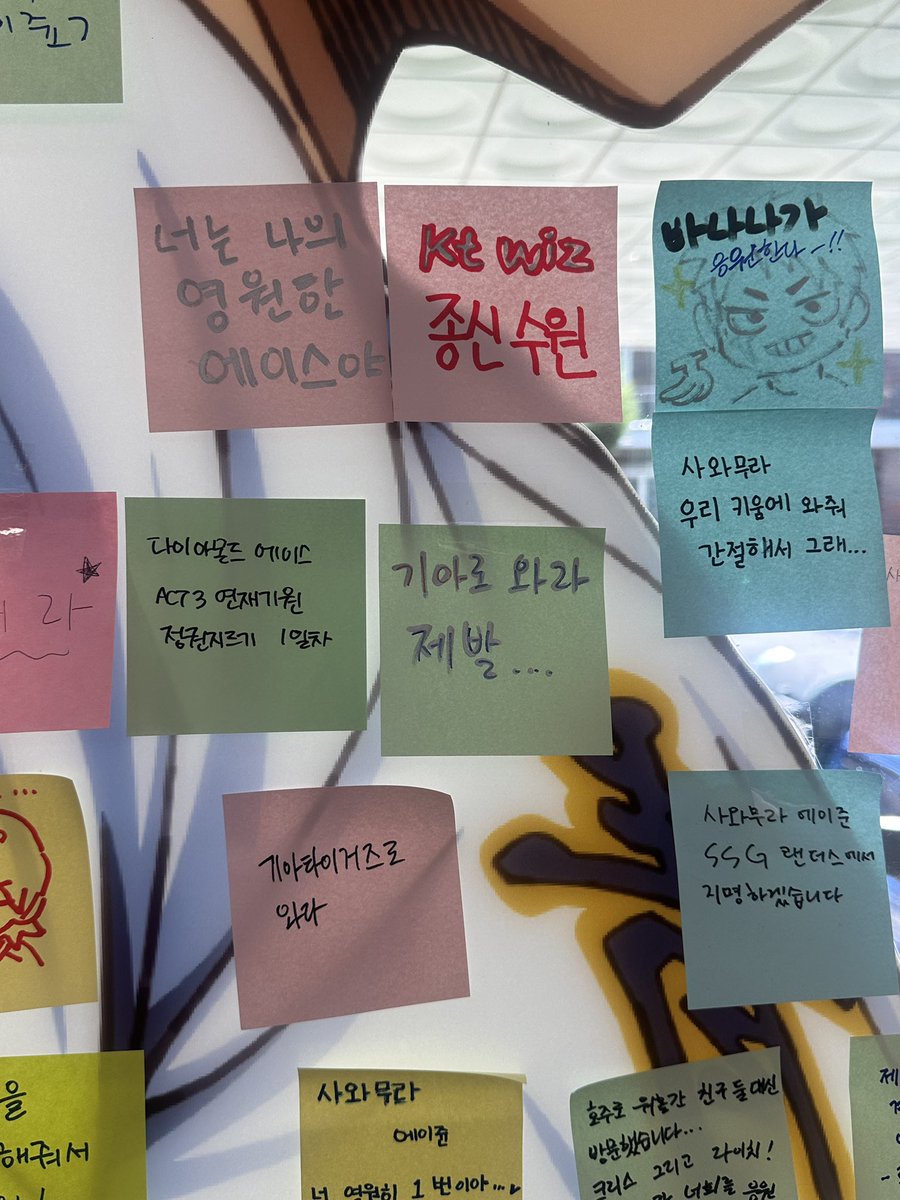 이줘요?
너는 나의
영원한
에이스야
Kt wiz
종신 수원
바나나가
응원한다-!!
사와무라
우리 키움에 와줘
간절해서 그래...
라
다이아몬드 에이스
ACT3 연재기원
정권지르기 1일차
기아로 와라
제발....
기아타이거즈로
와라
사와무라 에이준
SSG 랜더스에서
지명하겠습니다
을
해줘서
사와무라
에이쥰
넌 영원히 1번이야...
호주로 워홀간 친구들 대신
방문했습니다...
크리스 그리고 라이치!
너희를 응원
제